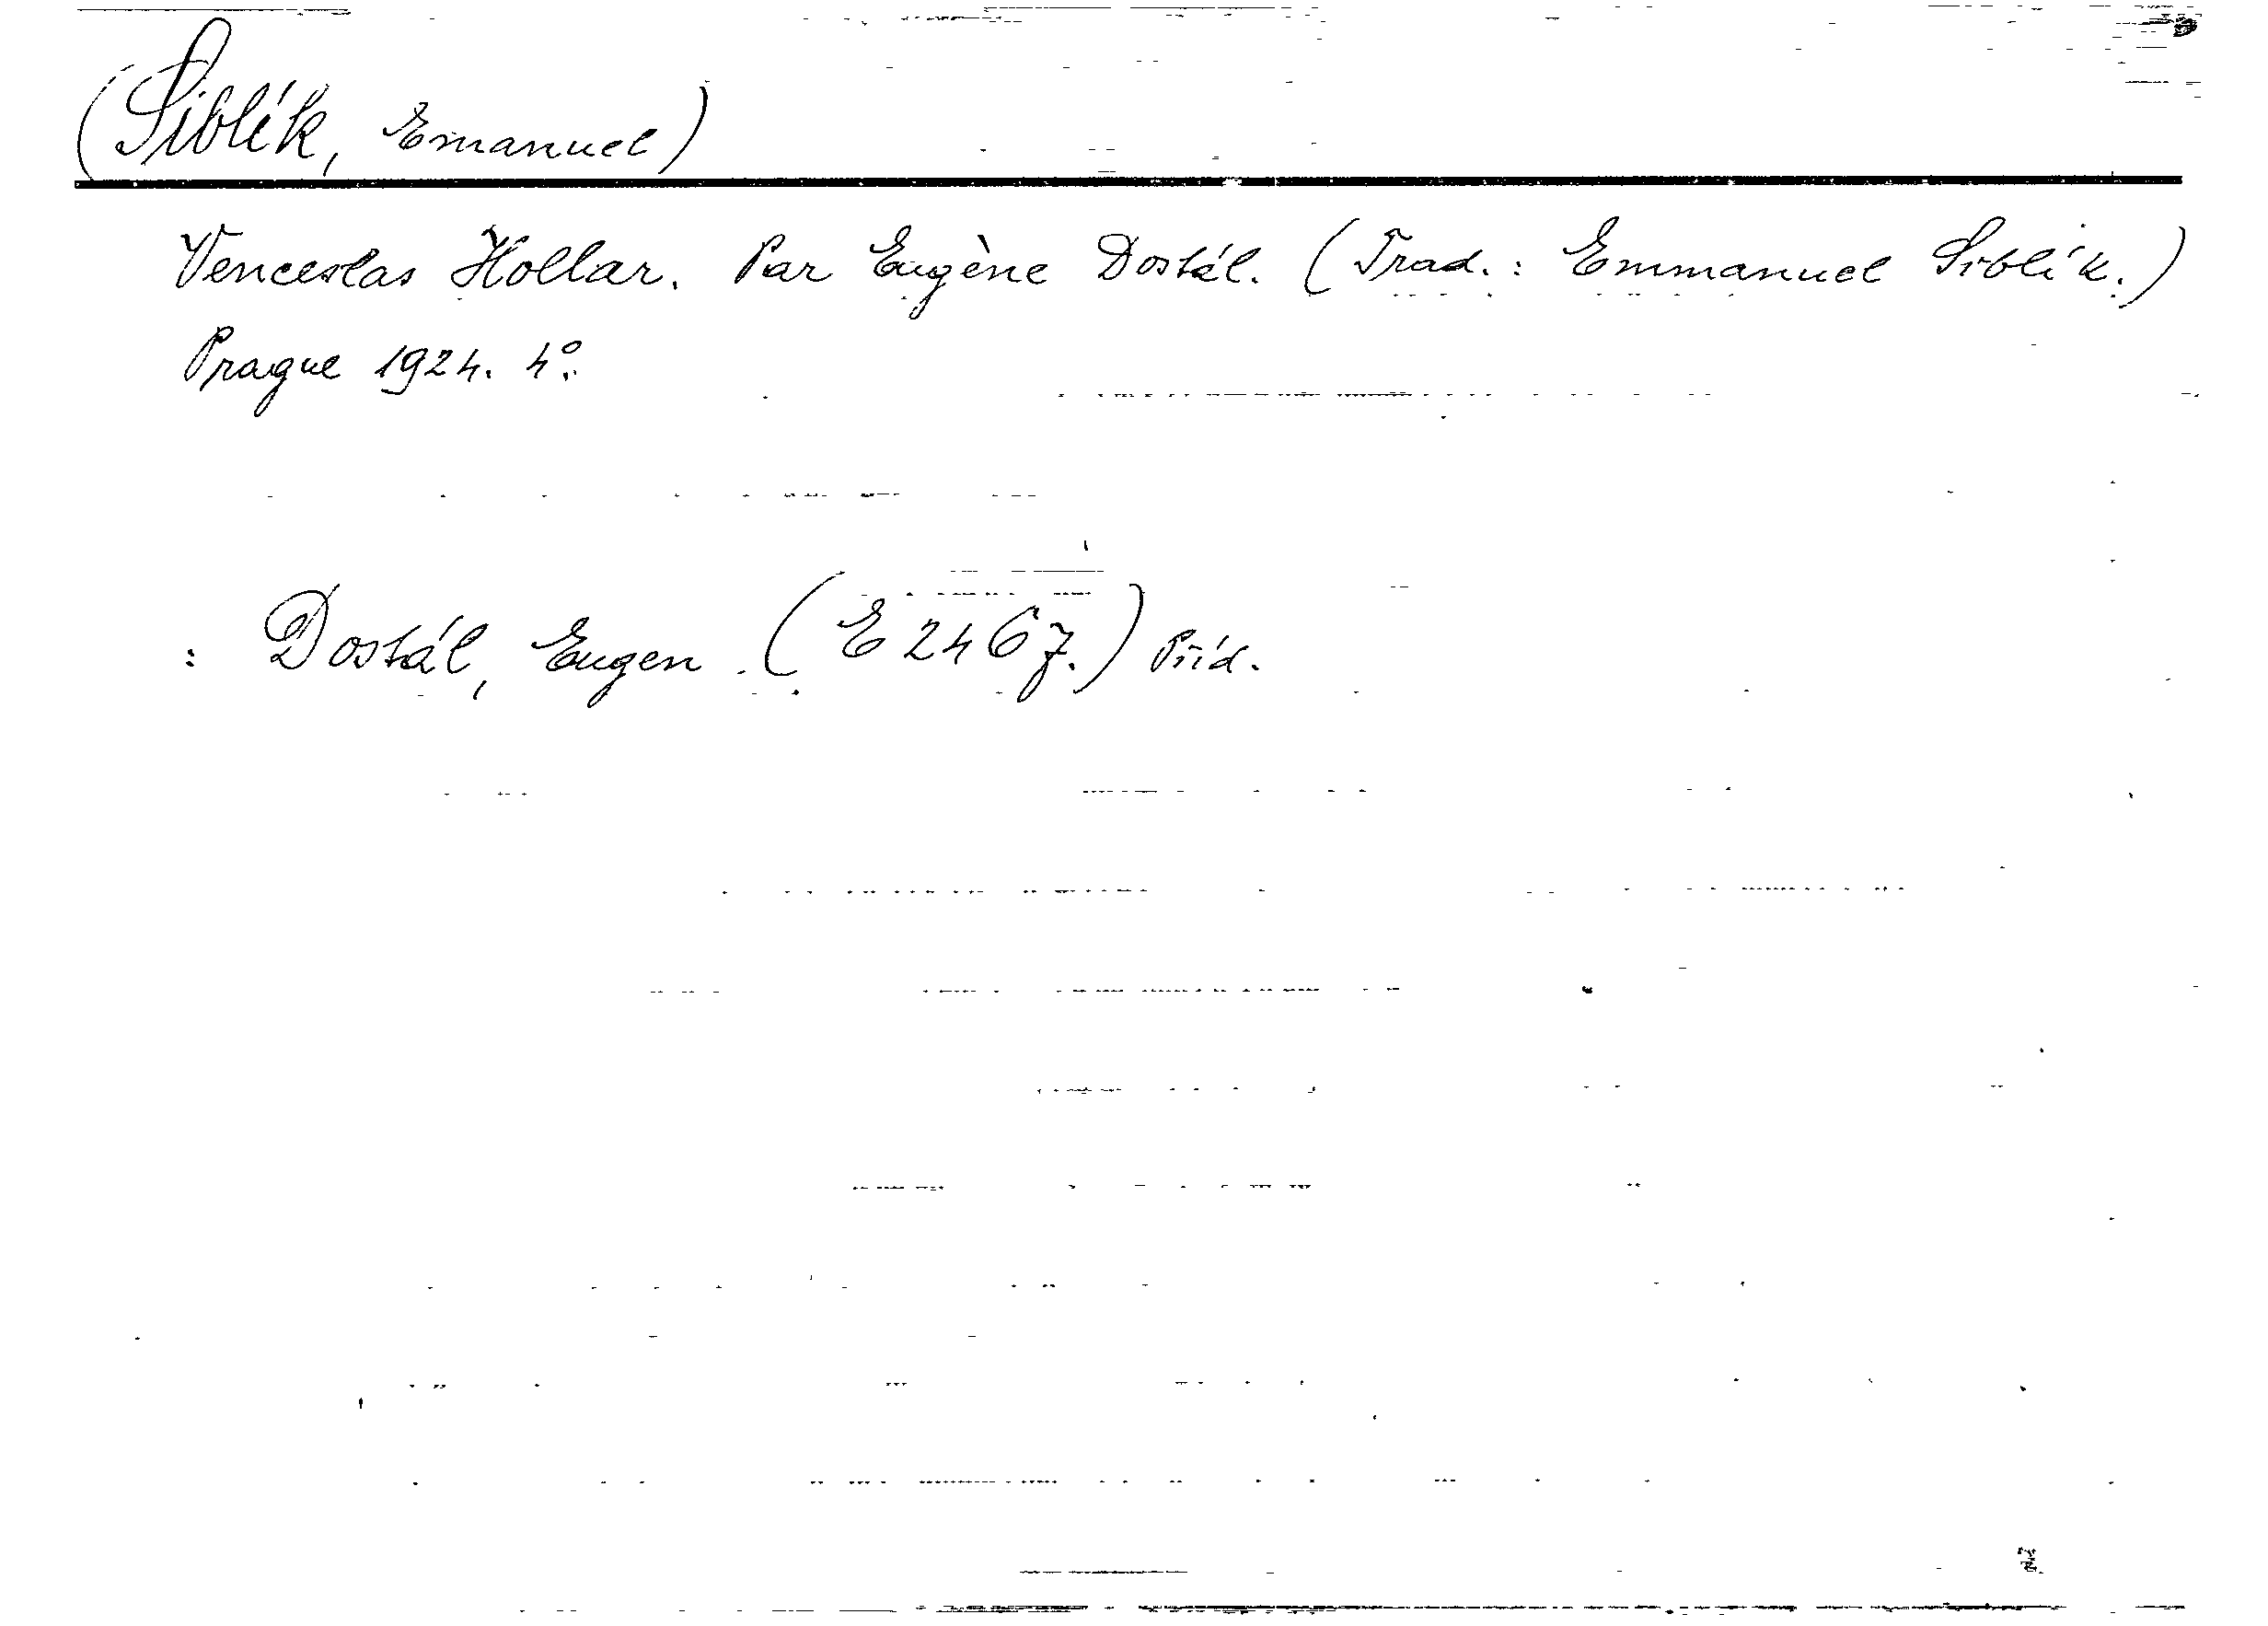 (Siblík, Emanuel)
Venceslas Hollar. Par Eugène Dostál. (Trad.: Emmanuel Siblík.)
Prague 1924. 4°.
: Dostál, Eugen. (E 2467.) Příd.